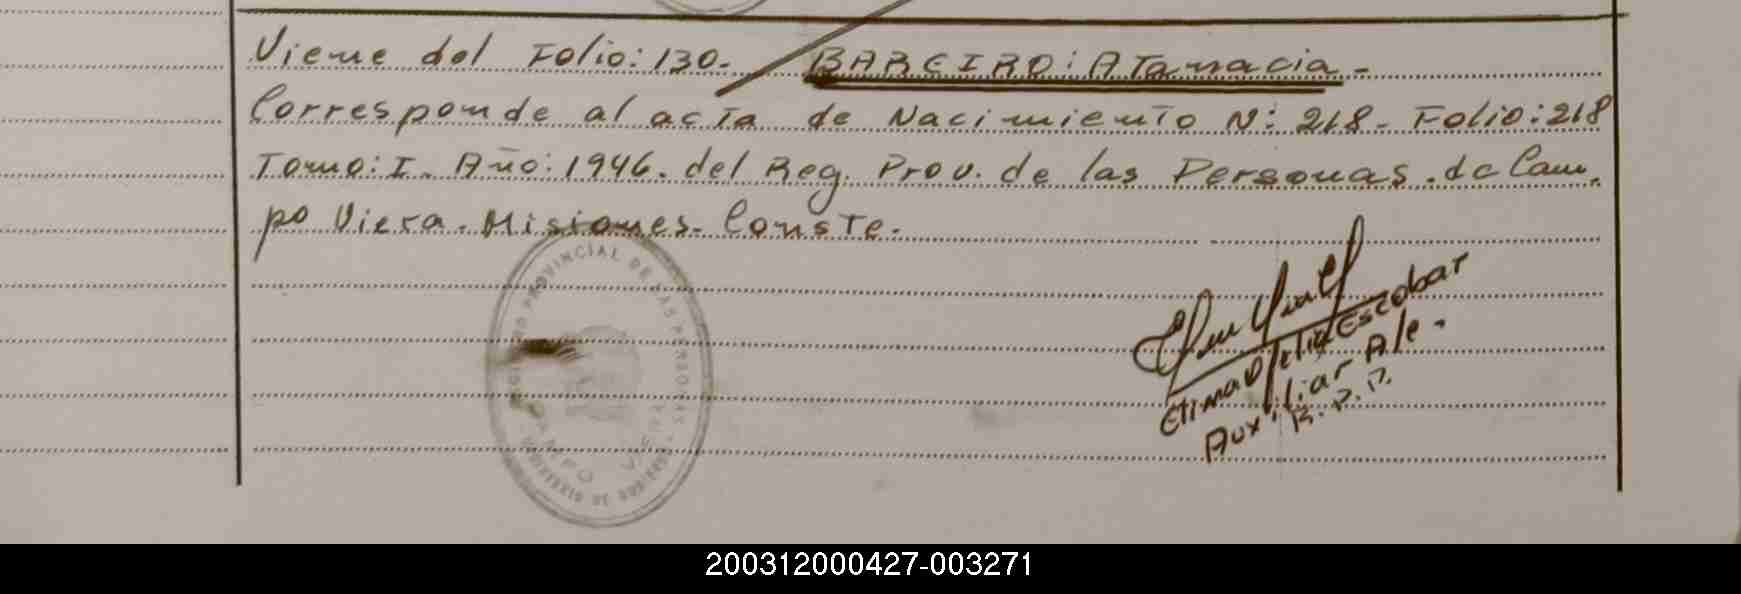 Viene del Folio: 130. BAREIRO: ATanacia.-
Corresponde al acta de Nacimiento N: 218. Folio: 218
Tomo: I. Año: 1946. del Reg. Prov. de las Personas. de Cam.
po Viera. Misiones. Conste.
REGISTRO PROVINCIAL DE LAS PERSONAS
CAMPO
MINISTERIO DE GOBIERNO
Escobar
Auxiliar Ale.
R. P. P.
200312000427-003271